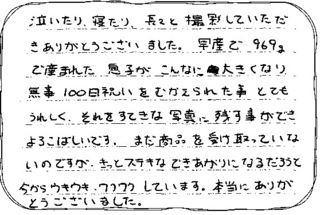 泣いたり、寝たり、長々と撮影していただ
きありがとうございました。早産で969g
で産まれた息子がこんなに大きくなり
無事100日祝いをむかえられた事とても
うれしく、それをすてきな写真に残す事ができ
よろこばしいです。まだ商品を受け取っていな
いのですが、きっとステキなできあがりになるだろうと
今からウキウキ、ワクワクしています。本当にありが
とうございました。